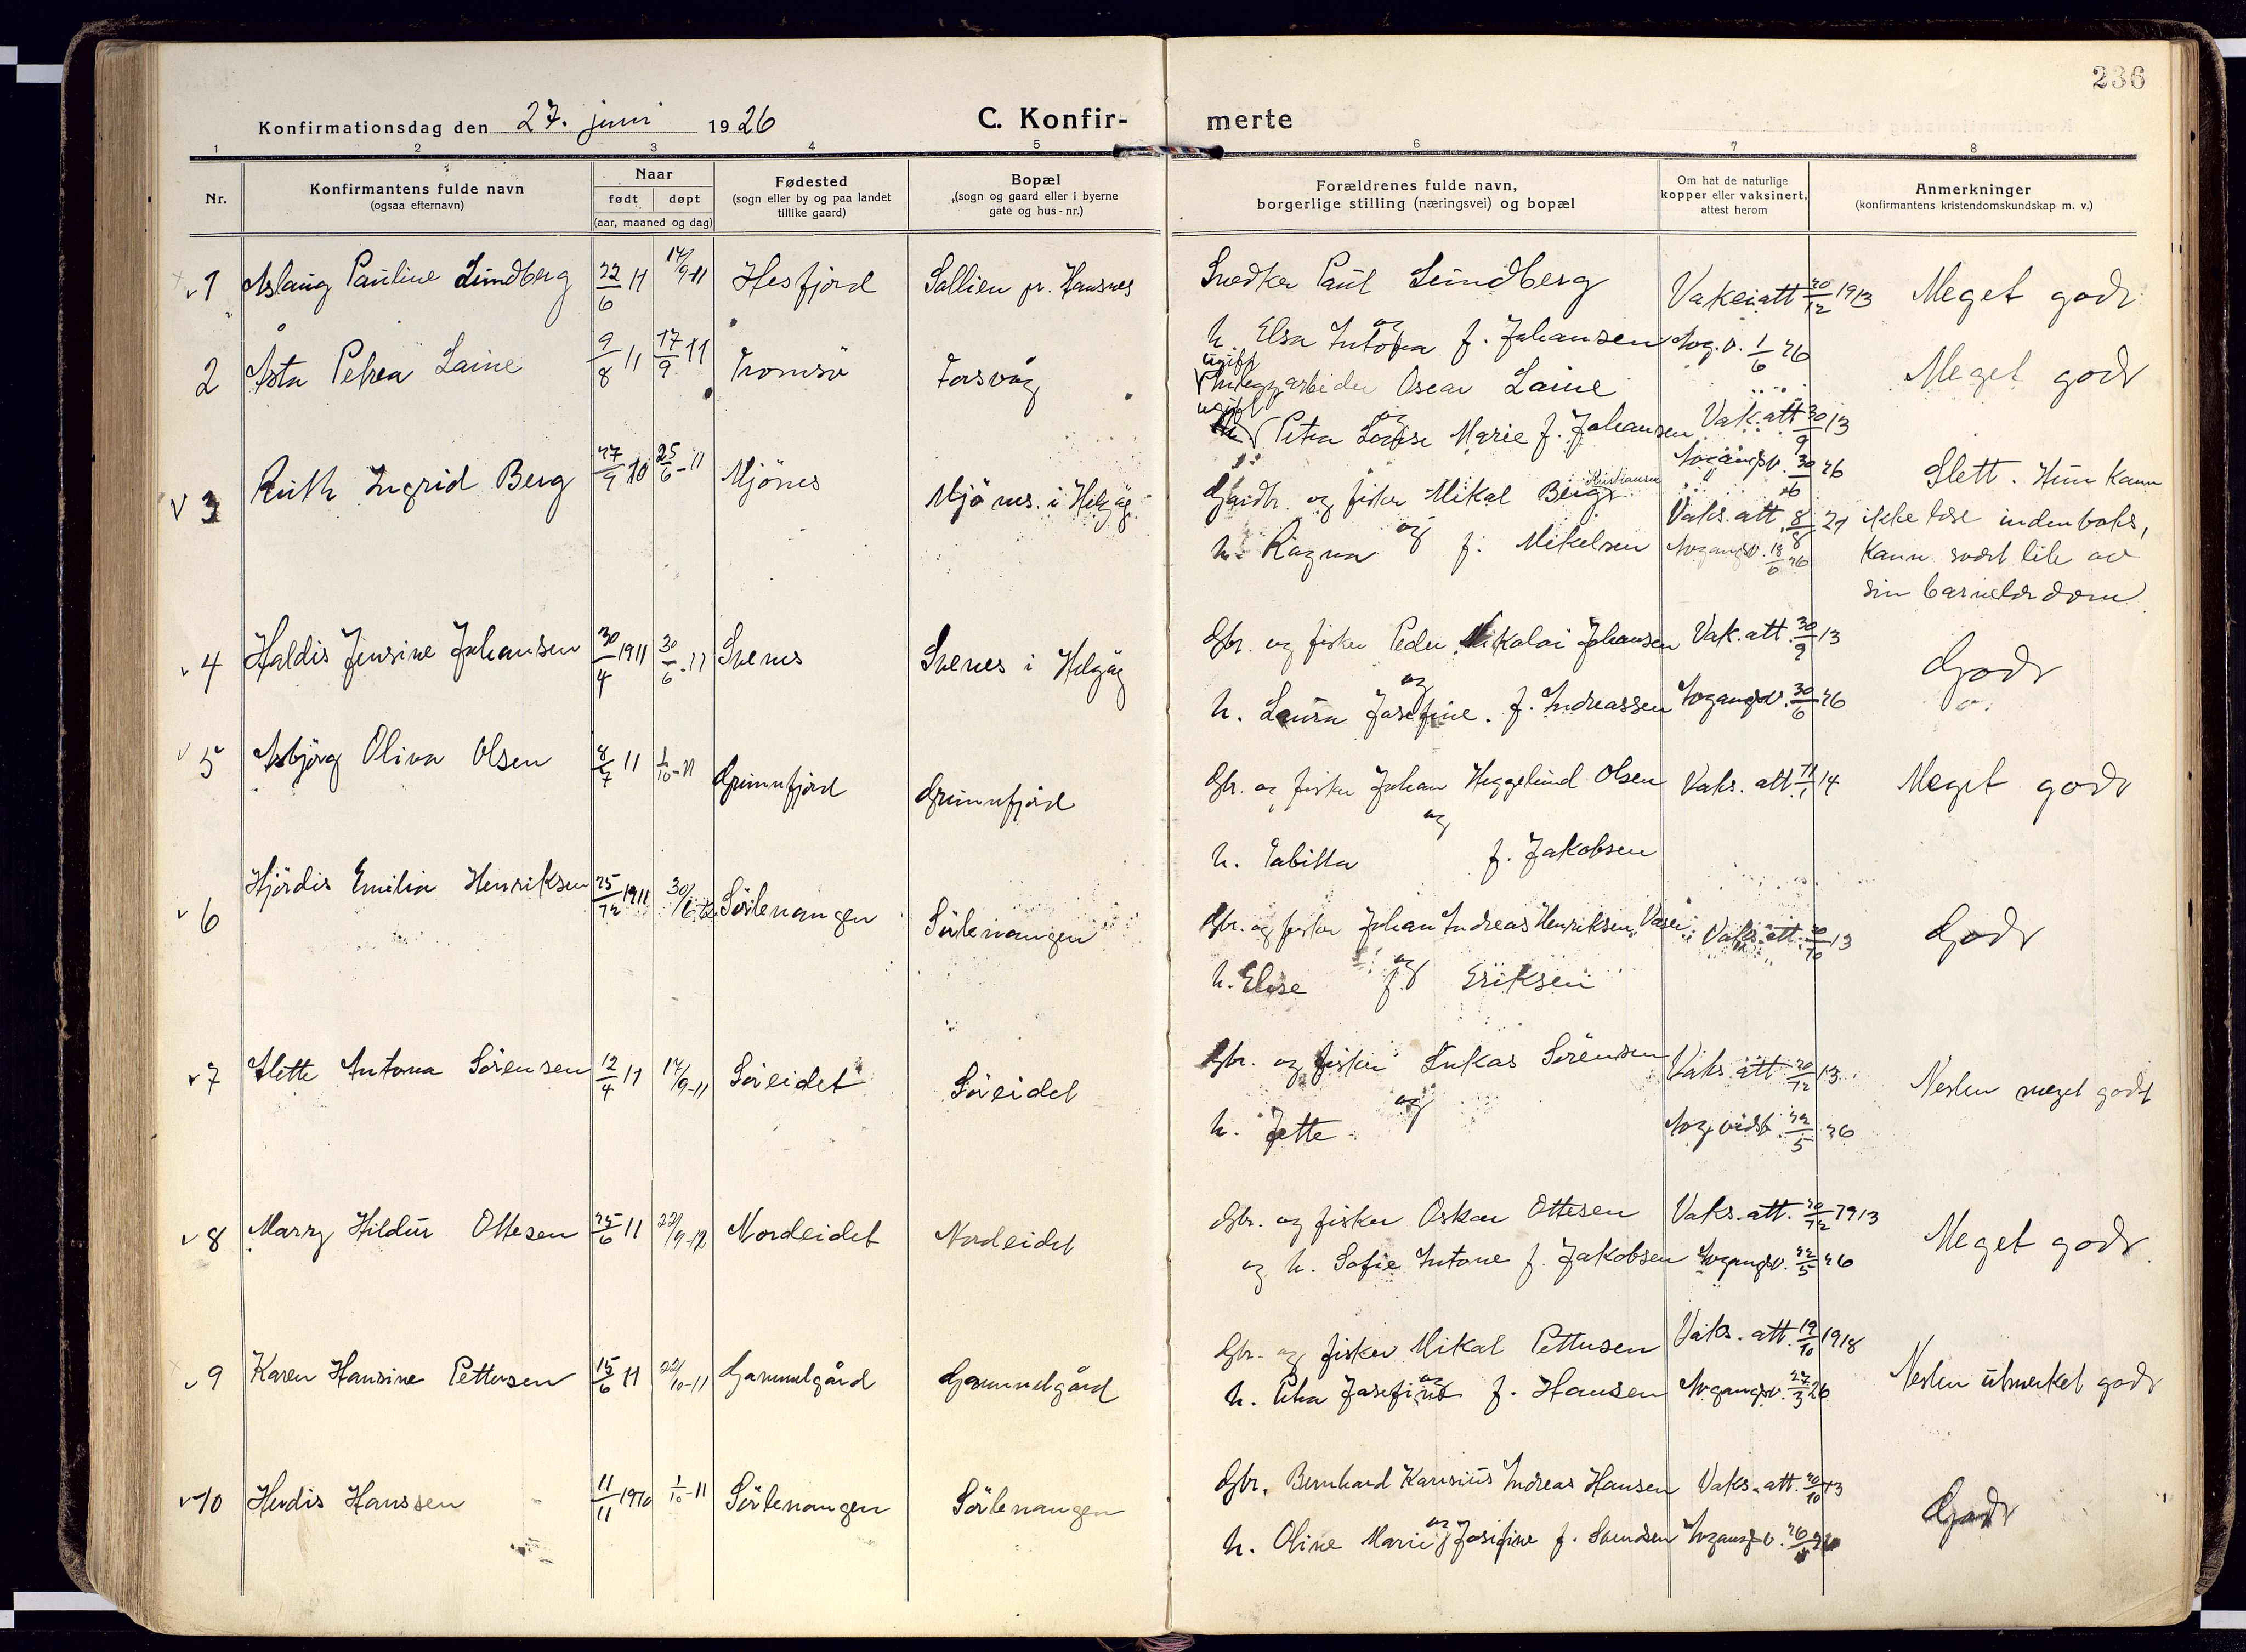 236
Konfirmationsdag den 27. juni 1926
C. Konfir-merte
1 2 3 4 5 6 7 8
Nr.
Konfirmantens fulde navn
(ogsaa efternavn)
Naar
født døpt
(aar, maaned og dag)
Fødested
(sogn eller by og paa landet
tillike gaard)
Bopæl
(sogn og gaard eller i byerne
gate og hus-nr.)
Forældrenes fulde navn,
borgerlige stilling (næringsvei) og bopæl
Om hat de naturlige
kopper eller vaksinert,
attest herom
Anmerkninger
(konfirmantens kristendomskundskap m. v.)
v 1 Aslaug Pauline Lundberg 22/6 11 14/9-11 Hesfjord Sollien pr. Hansnes Snedker Paul Lundberg Vaks. att 20/12 1913 Meget godt
og
h. Elsa Antona f. Johansen Avg. v. 1/6 26
2 Åsta Petrea Laine 9/8 11 17/9 11 Tromsø Torsvåg ugift Anlegsarbeider Oscar Laine Meget godt
ugift og
Petra Lovise Marie f. Johansen Vak. att 30/9 13
Avgangsv. 30/6 26
v 3 Ruth Ingrid Berg 27/9 10 25/6-11 Mjönes Mjönes i Helgöy Gaardbr. og fisker Mikal Berg Kristiansen Vaks. att 8/8 21 Slett. Hun kann
ikke læse indenboks,
kann svært lite av
sin barnelærdom
og
h. Ragna f. Mikelsen Avgangsv. 18/6 26
v 4 Haldis Jensine Johansen 30/4 1911 30/6-11 Skenes Skenes i Helgöy Gbr. og fisker Peder Nikolai Johansen Vak. att. 30/9 13 Godt
og
h. Laura Josefine f. Andreassen Avgangsv. 30/6 26
v 5 Asbjörg Oliva Olsen 8/7 11 1/10-11 Grunnfjord Grunnfjord Gbr. og fisker Johan Heggelund Olsen Vaks. att 11/1 14 Meget godt
og
h. Tabitta f. Jakobsen
v 6 Hjördis Emilia Henriksen 25/12 1911 30/6-12 Sörlenangen Sörlenangen Gbr. og fisker Johan Andreas Henriksen Vaks. att. 20/10 13 Godt
og
h. Elise f. Eriksen
v 7 Alette Antona Sörensen 12/4 11 14/9-11 Söreidet Söreidet Gbr. og fisker Lukas Sörensen Vaks. att 20/12 13 Nesten meget godt
og
h. Jette Avg. vidsb. 22/5 26
v 8 Marry Hildur Ottesen 25/6 11 22/9-12 Nordeidet Nordeidet Gbr. og fisker Oskar Ottesen Vaks. att. 20/12 1913 Meget godt
og h. Sofie Antone f. Jakobsen Avgangsv. 22/5 26
v 9 Karen Hansine Pettersen 15/6 11 22/10-11 Gammelgård Gammelgård Gbr. og fisker Mikal Pettersen Vaks. att. 19/10 1918 Nesten utmerket godt
og
h. Petra Josefine f. Hansen Avgangsv. 27/3 26
v 10 Herdis Hanssen 11/11 1910 1/10-11 Sörlenangen Sörlenangen Gbr. Bernhard Karisius Andreas Hansen Vaks. att. 20/10 13 Godt
og
h. Oline Marie Josefine f. Svendsen Avgangsv.